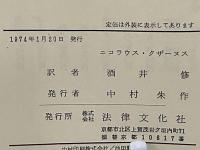 定価は外装に表示してあります
1974年1月20日 発行
ニコラウス・クザーヌス
訳者 酒井修
発行者 中村朱作
発行所 株式会社 法律文化社
京都市北区上賀茂岩ケ垣内町71
振替京都10617番